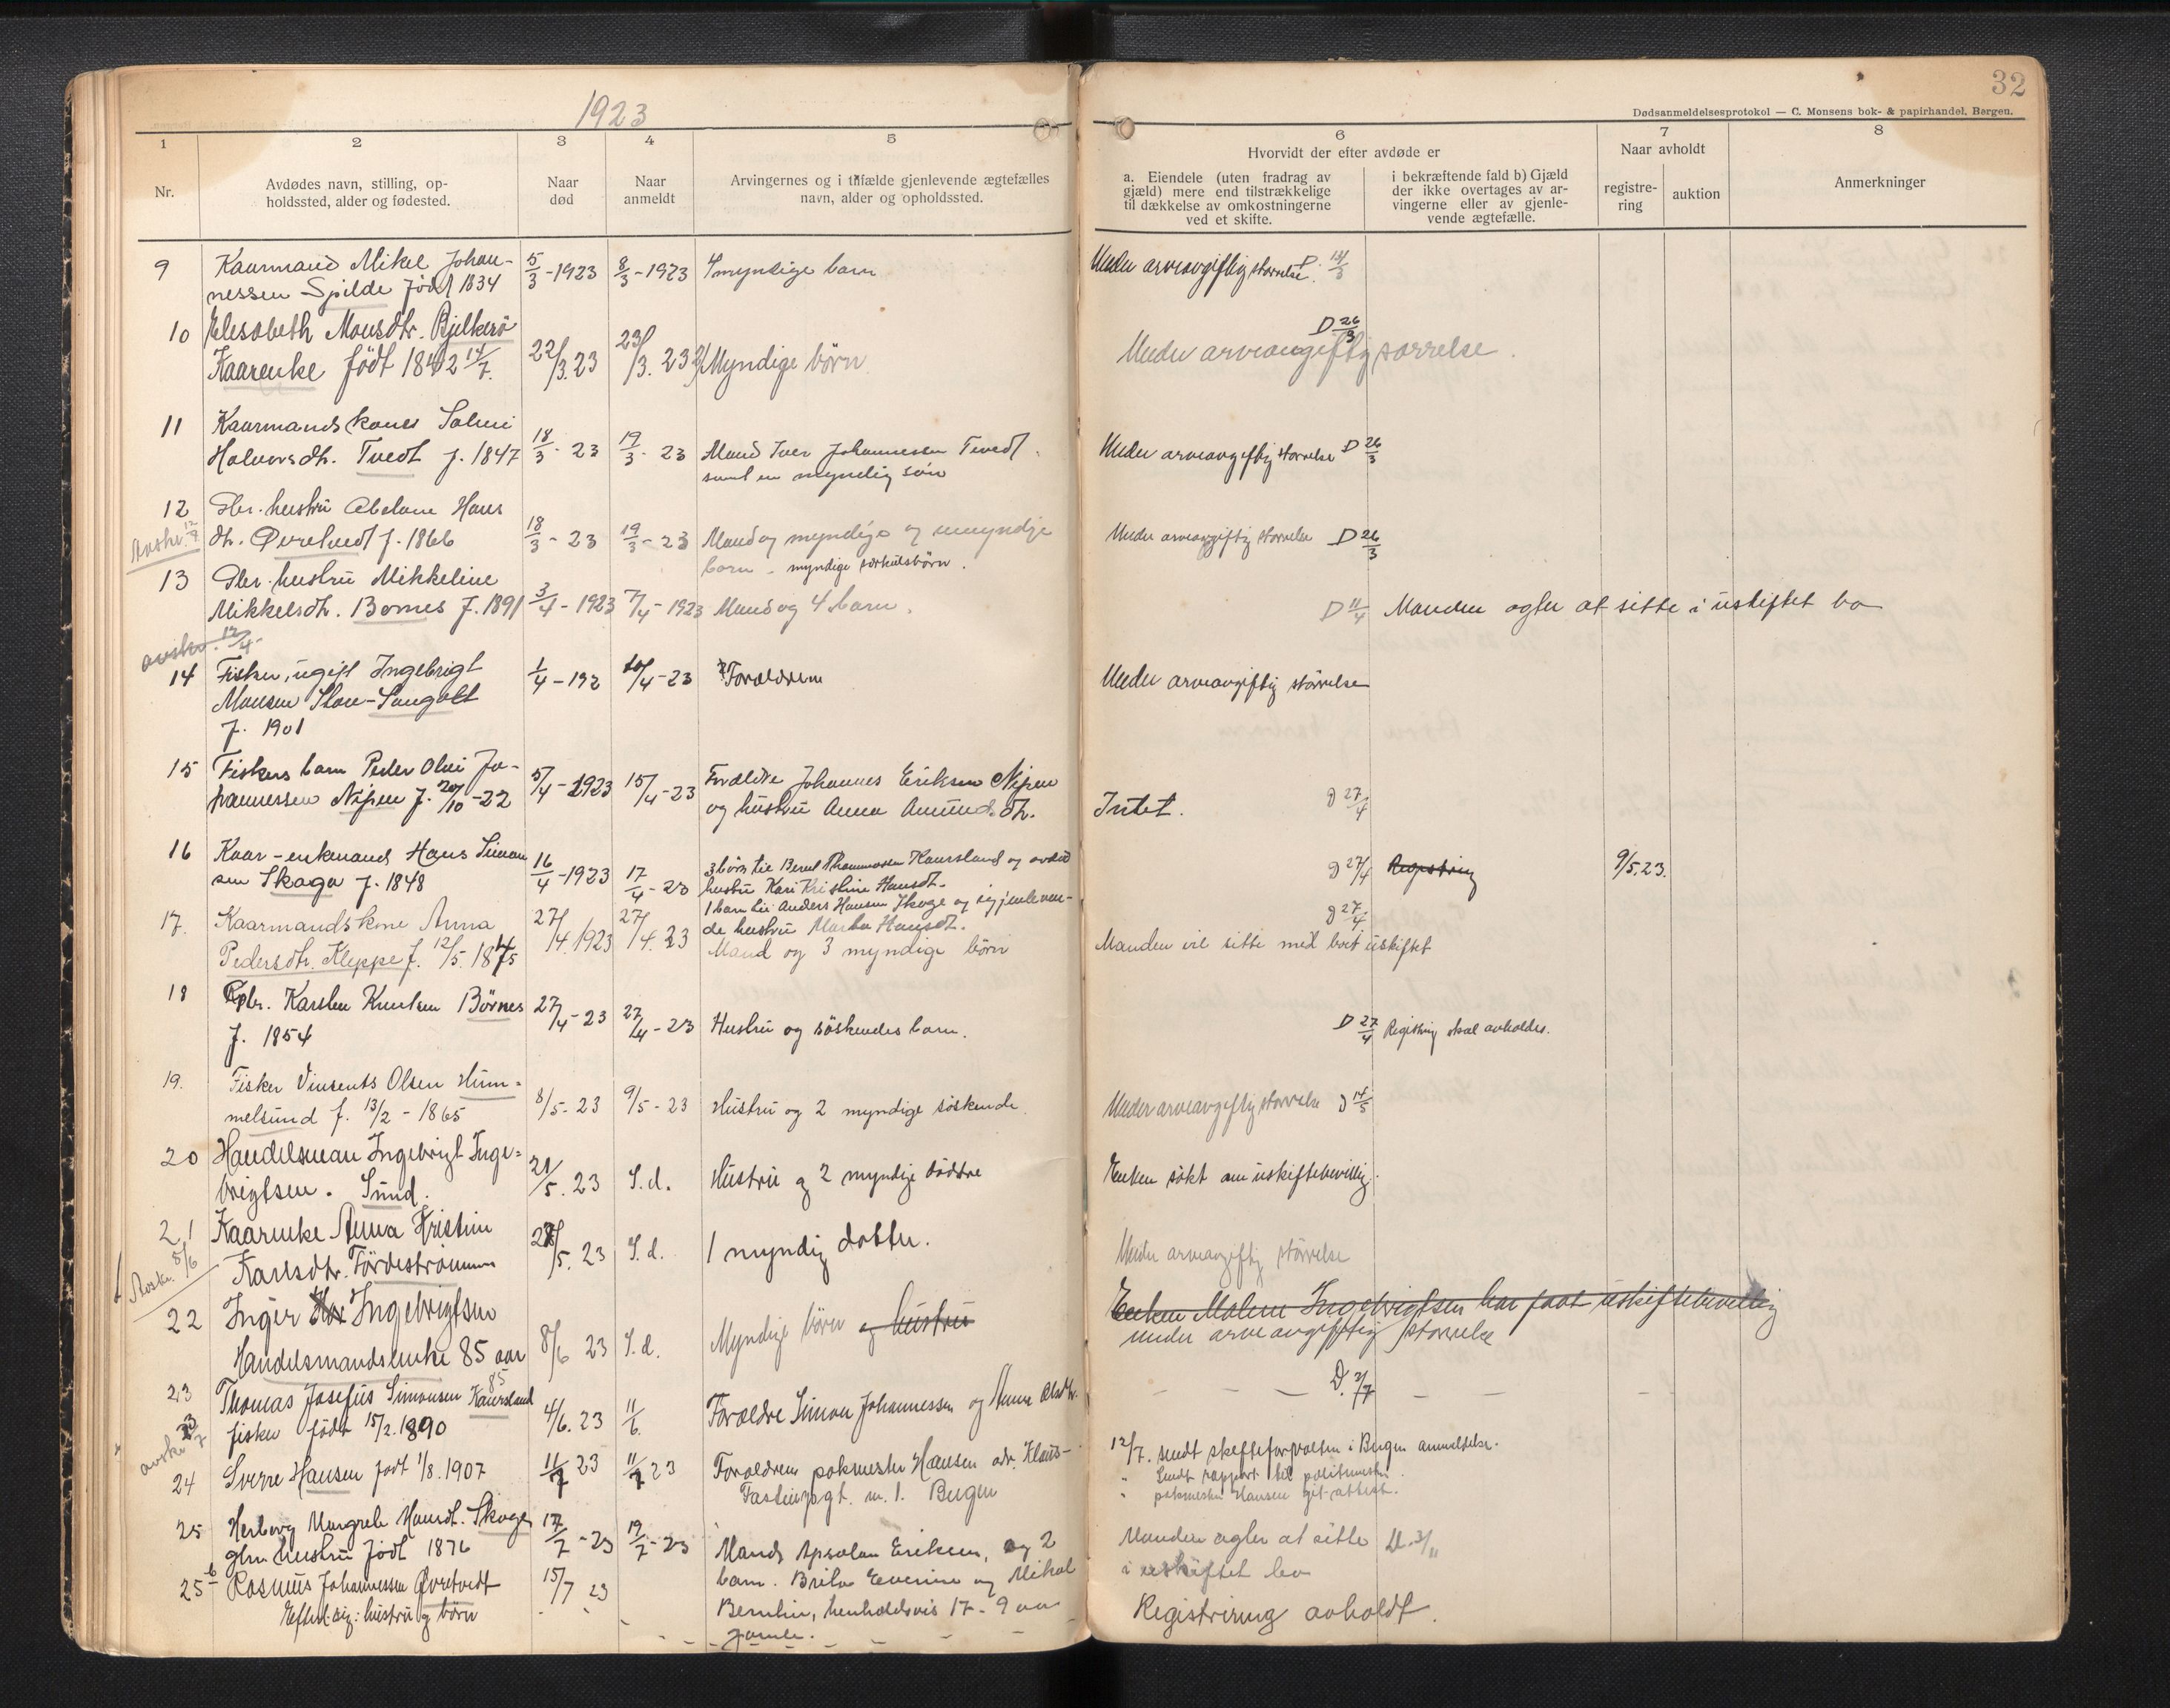 1923
32
Dødsanmeldelsesprotokol — C. Monsens bok- & papirhandel, Bergen.
1
2
3
4
5
6
7
8
Nr.
Avdødes navn, stilling, op-
holdssted, alder og fødested.
Naar
død
Naar
anmeldt
Arvingernes og i tilfælde gjenlevende ægtefælles
navn, alder og opholdssted.
Hvorvidt der efter avdøde er
a. Eiendele (uten fradrag av
gjæld) mere end tilstrækkelige
til dækkelse av omkostningerne
ved et skifte.
i bekræftende fald b) Gjæld
der ikke overtages av ar-
vingerne eller av gjenle-
vende ægtefælle.
Naar avholdt
registre-
ring
auktion
Anmerkninger
9 Kaarmand Mikel Johan-
nessen Spilde født 1834
5/3-1923 8/3-1923 4 myndige barn
Under arveavgiftig størrelse. D.
10 Elesabeth Monsdtr. Bjelkerö
Kaarenke födt 1842 14/7.
22/3.23 23/3.23 Myndige börn
D 26/3
Under arveavgiftig størrelse.
11 Kaarmandskones
Halvorsdtr. Tvedt f. 1847
18/3-23 19/3-23 Mand Iver Johannesen Tvedt
samt en myndig søn
Under arveavgiftig størrelse D 26/3
12 Gbr. hustru Abelone Hans
dtr. Øvretvedt f. 1866
18/3-23 19/3-23 Mand og myndige og umyndige
barn - myndige særkulsbörn.
Under arveavgiftig størrelse D 26/3
13 Gbr. hustru Mikkeline
Mikkelsdtr. Bornes f. 1891
3/4-1923 7/4-1923 Mand og 4 barn.
D 11/4 Manden agter at sitte i uskiftet bo
avskr. 12/4
14 Fisker, ugift Ingebrigt
Monsen Store-Sangolt
f. 1901
1/4-192 10/4-23 Forældrene
Under arveavgiftig størrelse
15 Fiskers barn Peder Olai Jo-
hannessen Nipen f. 20/10-22
5/4-1923 15/4-23 Forældre Johannes Eriksen Nipen
og hustru Anna Amunds.dtr.
Intet. D 27/4
16 Kaar-enkmand Hans Simon
sen Skage f. 1848
16/4-1923 17/4-23
3 börn til Bernt Thomassen Kaursland og avdød
hustru Kari Kristine Hansdt.
1 barn til Anders Hansen Skoge og gjenleven-
de hustru Marta Hansdt.
D 27/4 Registring 9/5.23.
17. Kaarmandskone Anna
Pedersdtr. Kleppe f. 12/5.1875
27/4.1923 27/4.23 Mand og 3 myndige börn
D 27/4
Manden vil sitte med boet uskiftet
18 Gbr. Karsten Knutsen Börnes
f. 1854
27/4-23 27/4-23 Hustru og söskendes barn.
D 27/4 Registring skal avholdes.
19. Fisker Vinsents Olsen Hum-
melsund f. 13/2-1865
8/5-23 9/5-23 Hustru og 2 myndige söskende
Under arveavgiftig størrelse D 14/5
20 Handelsman Ingebrigt Inge-
brigtsen. Sund.
21/5.23 S.d. Hustru og 2 myndige döttre
Enken sökt om uskiftebevillig.
21 Kaarenke Anna Kristin
Karlsdtr. Fördeströmmen
S.d. 1 myndig datter.
Under arveavgiftig störrelse
Avskr. 8/6
22 Inger Ingebrigtsen
Handelsmandsenke 85 aar
85
8/6 23 S.d. Myndige börn og hustru
Enken Malene Ingebrigtsen har faat uskiftebevillig
under arveavgiftig størrelse
23 Thomas Josefus Simonsen Kaursland
fisker födt 15/2.1890
4/6.23 11/6. Forældre Simon Johannessen og Anna Olsdtr.
D. 2/7
24 Sverre Hansen født 1/8.1907
11/7 23 11/7 23 Forældrene pokmester Hansen adr. Klaus-
12/7. sendt skifteforvalten i Bergen anmeldelse.
" Sendt rapport til politimester.
25 Herborg Margrete Hansdt. Skoge
gbr. hustru född 1876
17/7-23 19/7-23 Mand Apsalon Eriksen, og 2
barn. Brita Everine og Mikal
Bernhn, henholdsvis 17-9 aar
gamle.
Manden agter at sitte
i uskiftet bo
25 b Rasmus Johannessen Øvretvedt
Efterl. sig: hustru og börn
15/7 23
Registrirung avholdt.